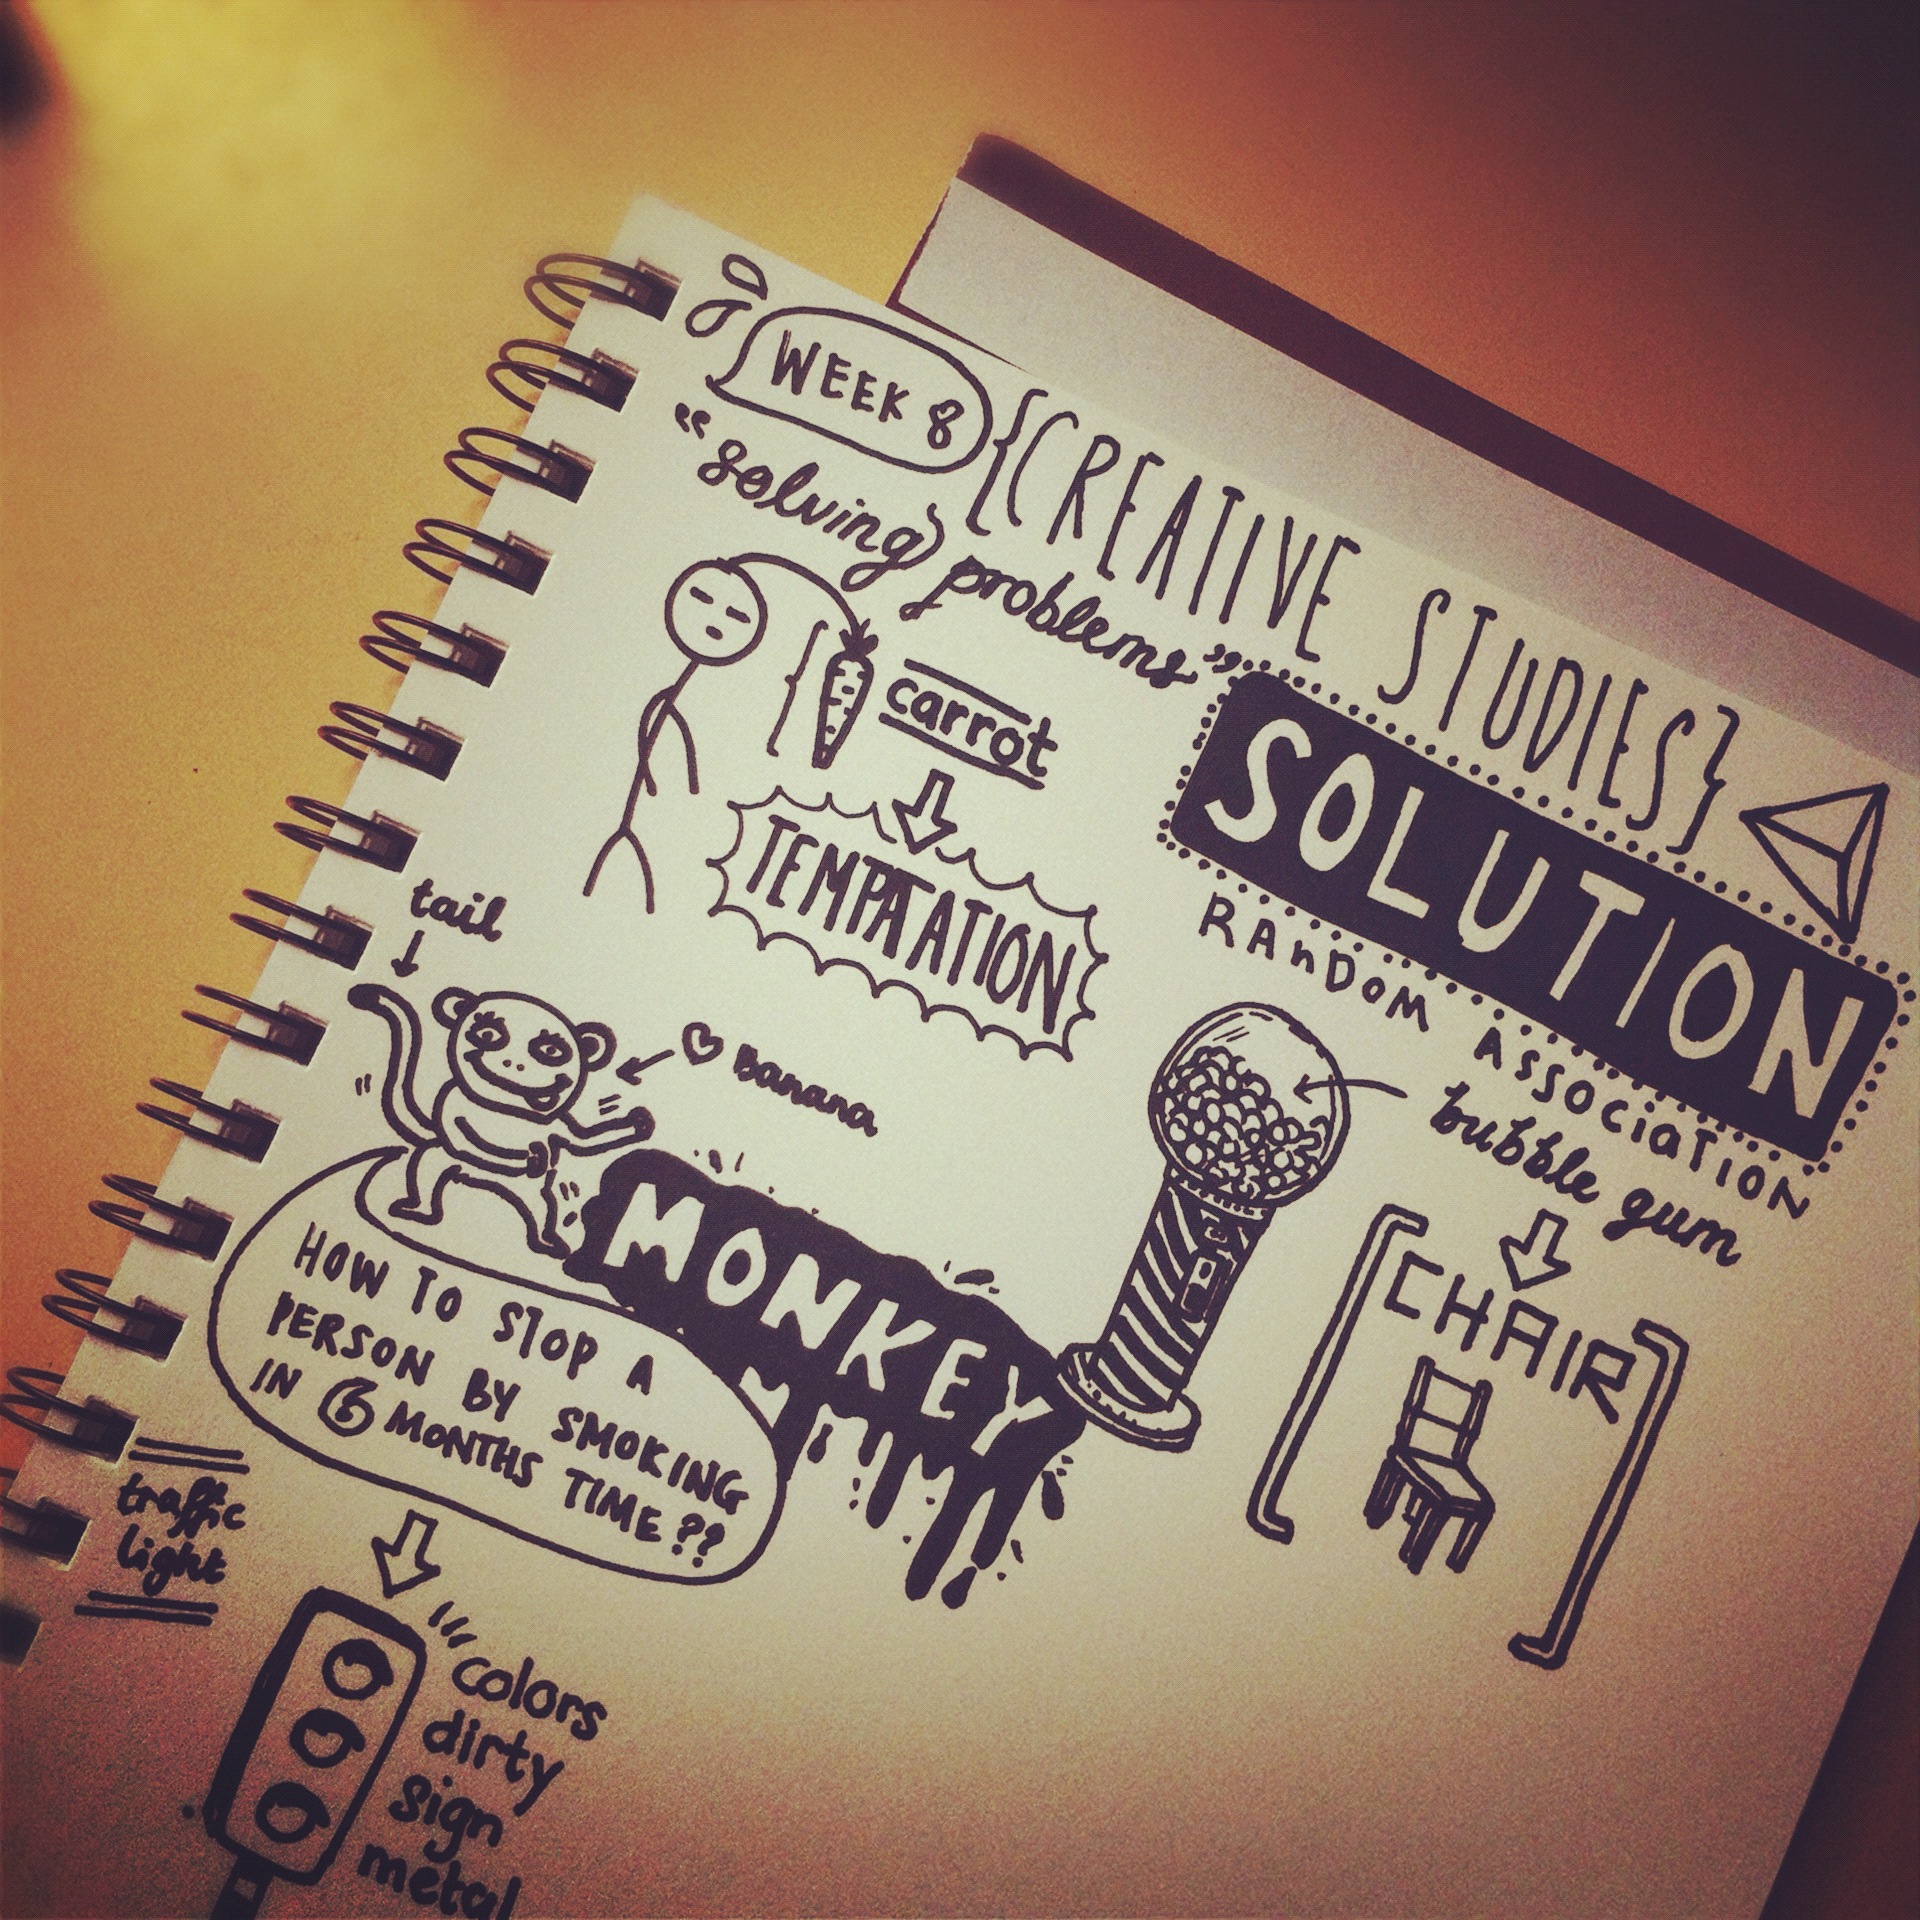 WEEK 8
{CREATIVE STUDIES}
"solving problems"
carrot
TEMPTATION
SOLUTION
RANDOM ASSOCIATION
bubble gum
CHAIR
tail
♡ Banana
MONKEY
HOW TO STOP A
PERSON BY SMOKING
IN 6 MONTHS TIME??
traffic
light
colors
dirty
sign
metal